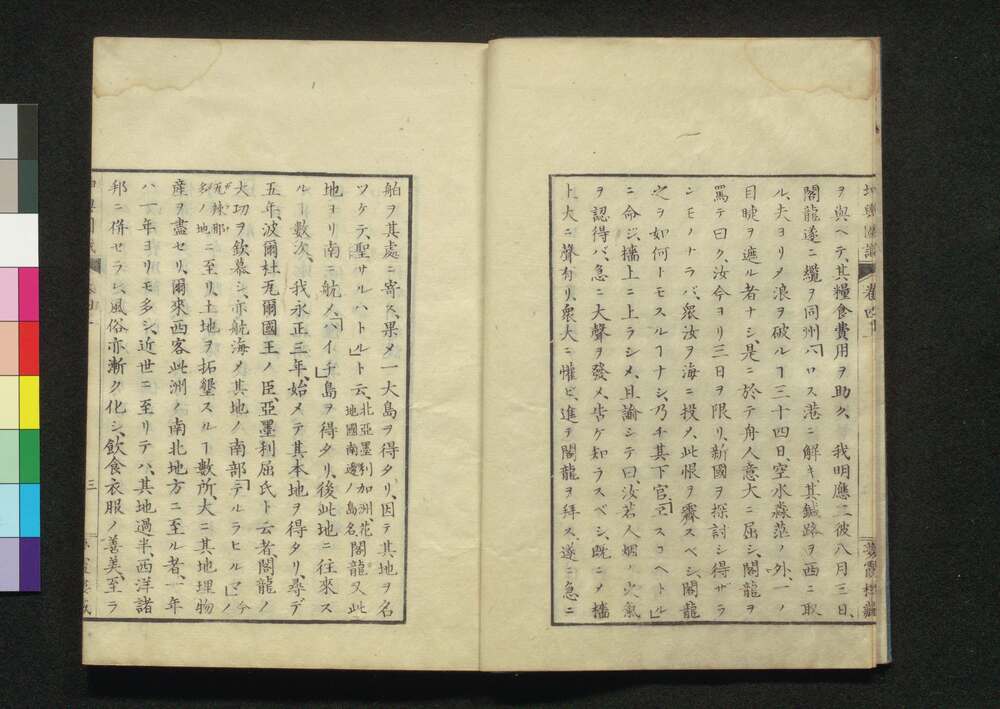 ヲ與ヘテ、其糧食費用ヲ助ク、我明應二彼八月三日、
閣龍遂ニ纜ヲ同州「パロス港ニ解キ其鍼路ヲ西ニ取
ル、夫ヨリ〆浪ヲ破ルヿ三十四日、空水淼茫ノ外、一ノ
目睫ヲ遮ル者ナシ、是ニ於テ舟人意大ニ屈シ、閣龍ヲ
罵テ曰ク、汝今ヨリ三日ヲ限リ、新國ヲ探討シ得ザラ
シモノナラバ、衆汝ヲ海ニ投〆、此恨ヲ霽スベシ、閣龍
之ヲ如何トモスルヿナシ、乃チ其下官「スコヘトル」
ニ命ジ、檣上ニ上ラシメ、且諭シテ曰、汝若人烟ノ火氣
ヲ認得バ、急ニ大聲ヲ發〆、告ケ知ラスベシ、既ニ〆檣
上大ニ聲有リ、衆大ニ懽ビ、進テ閣龍ヲ拜ス、遂ニ急ニ
卷四
船ヲ其處ニ寄ス、果〆一大島ヲ得タリ、因テ其地ヲ名
ツケテ、聖サルハトル」ト云、北亞墨利加洲花地國南邊ノ島名閣龍又此
地ヨリ南ニ航〆、「ハイチ」島ヲ得タリ、後此地ニ往來ス
ルヿ數次、我永正三年、始メテ其本地ヲ得タリ、尋デ
五年、波爾杜瓦爾國王ノ臣、亞墨利屈氏ト云者閣龍ノ
大功ヲ欽慕シ、亦航海〆其地ノ南部「テルラヒルマ」今ノ
瓦辣那多ノ地ニ至リ、土地ヲ拓墾スルヿ數所、大ニ其地理物
産ヲ盡セリ、爾來西客此洲ノ南北地方ニ至ル者、一年
ハ一年ヨリモ多シ、近世ニ至リテハ、其地過半、西洋諸
邦ニ併セラレ、風俗亦漸ク化シ、飲食衣服ノ善美、至ラ
三